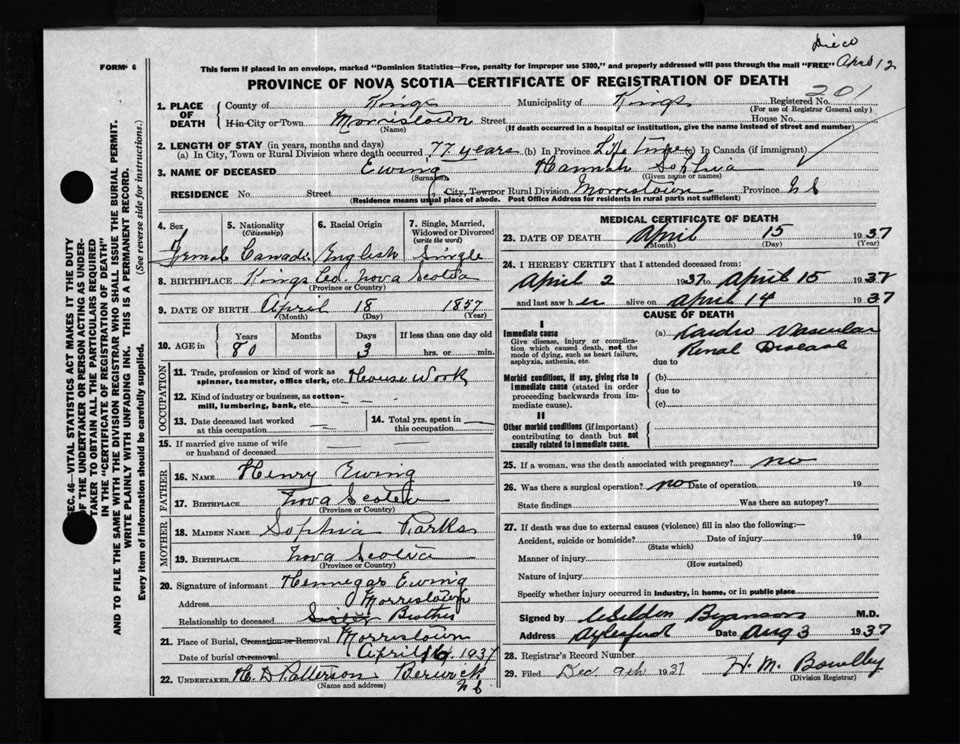 Died
FORM 6
This form if placed in an envelope, marked "Dominion Statistics—Free, penalty for improper use $300," and properly addressed will pass through the mail "FREE" April 12
PROVINCE OF NOVA SCOTIA—CERTIFICATE OF REGISTRATION OF DEATH
201
1. PLACE OF DEATH County of Kings Municipality of Kings Registered No. (For use of Registrar General only)
If in City or Town Morristown Street House No.
(Name) (If death occurred in a hospital or institution, give the name instead of street and number)
2. LENGTH OF STAY (in years, months and days)
(a) In City, Town or Rural Division where death occurred 77 years (b) In Province Life time (c) In Canada (if immigrant)
3. NAME OF DECEASED Ewing Hannah Sophia
(Surname) (Given name or names)
RESIDENCE No. Street City, Town or Rural Division Morristown Province N S
(Residence means usual place of abode. Post Office Address for residents in rural parts not sufficient)
SEC. 46—VITAL STATISTICS ACT MAKES IT THE DUTY
OF THE UNDERTAKER OR PERSON ACTING AS UNDER-
TAKER TO OBTAIN ALL THE PARTICULARS REQUIRED
IN THE "CERTIFICATE OF REGISTRATION OF DEATH"
AND TO FILE THE SAME WITH THE DIVISION REGISTRAR WHO SHALL ISSUE THE BURIAL PERMIT.
WRITE PLAINLY WITH UNFADING INK. THIS IS A PERMANENT RECORD.
Every item of information should be carefully supplied. (See reverse side for instructions.)
4. Sex 5. Nationality (Citizenship) 6. Racial Origin 7. Single, Married, Widowed or Divorced (write the word)
Female Canadian English Single
8. BIRTHPLACE Kings Co. Nova Scotia
(Province or Country)
9. DATE OF BIRTH April 18 1857
(Month) (Day) (Year)
10. AGE in Years Months Days If less than one day old
80 3 hrs. or min.
OCCUPATION
11. Trade, profession or kind of work as spinner, teamster, office clerk, etc. House Work
12. Kind of industry or business, as cotton-mill, lumbering, bank, etc.
13. Date deceased last worked at this occupation 14. Total yrs. spent in this occupation
15. If married give name of wife or husband of deceased
FATHER
16. NAME Henry Ewing
17. BIRTHPLACE Nova Scotia
(Province or Country)
MOTHER
18. MAIDEN NAME Sophia Parks
19. BIRTHPLACE Nova Scotia
(Province or Country)
20. Signature of informant Hennegar Ewing
Address Morristown
Relationship to deceased Sister Brother
21. Place of Burial, Cremation or Removal Morristown
Date of burial or removal April 1937
22. UNDERTAKER H. D Patterson Berwick
(Name and address) N S
MEDICAL CERTIFICATE OF DEATH
23. DATE OF DEATH April 15 1937
(Month) (Day) (Year)
24. I HEREBY CERTIFY that I attended deceased from:
April 2 1937 to April 15 1937
and last saw her alive on April 14 1937
CAUSE OF DEATH
I
Immediate cause (a) Cardio Vascular
Give disease, injury or complication which caused death, not the mode of dying, such as heart failure, asphyxia, asthenia, etc. Renal Disease
due to
Morbid conditions, if any, giving rise to immediate cause (stated in order proceeding backwards from immediate cause). (b)
due to
(c)
II
Other morbid conditions (if important) contributing to death but not causally related to immediate cause.
25. If a woman, was the death associated with pregnancy? no
26. Was there a surgical operation? no Date of operation 19
State findings Was there an autopsy?
27. If death was due to external causes (violence) fill in also the following:—
Accident, suicide or homicide? Date of injury 19
(State which)
Manner of injury
(How sustained)
Nature of injury
Specify whether injury occurred in industry, in home, or in public place
Signed by M.D.
Address Aylesford Date Aug 3 1937
28. Registrar's Record Number
29. Filed Dec. 9th 1937 H. M. Bowlby
(Division Registrar)